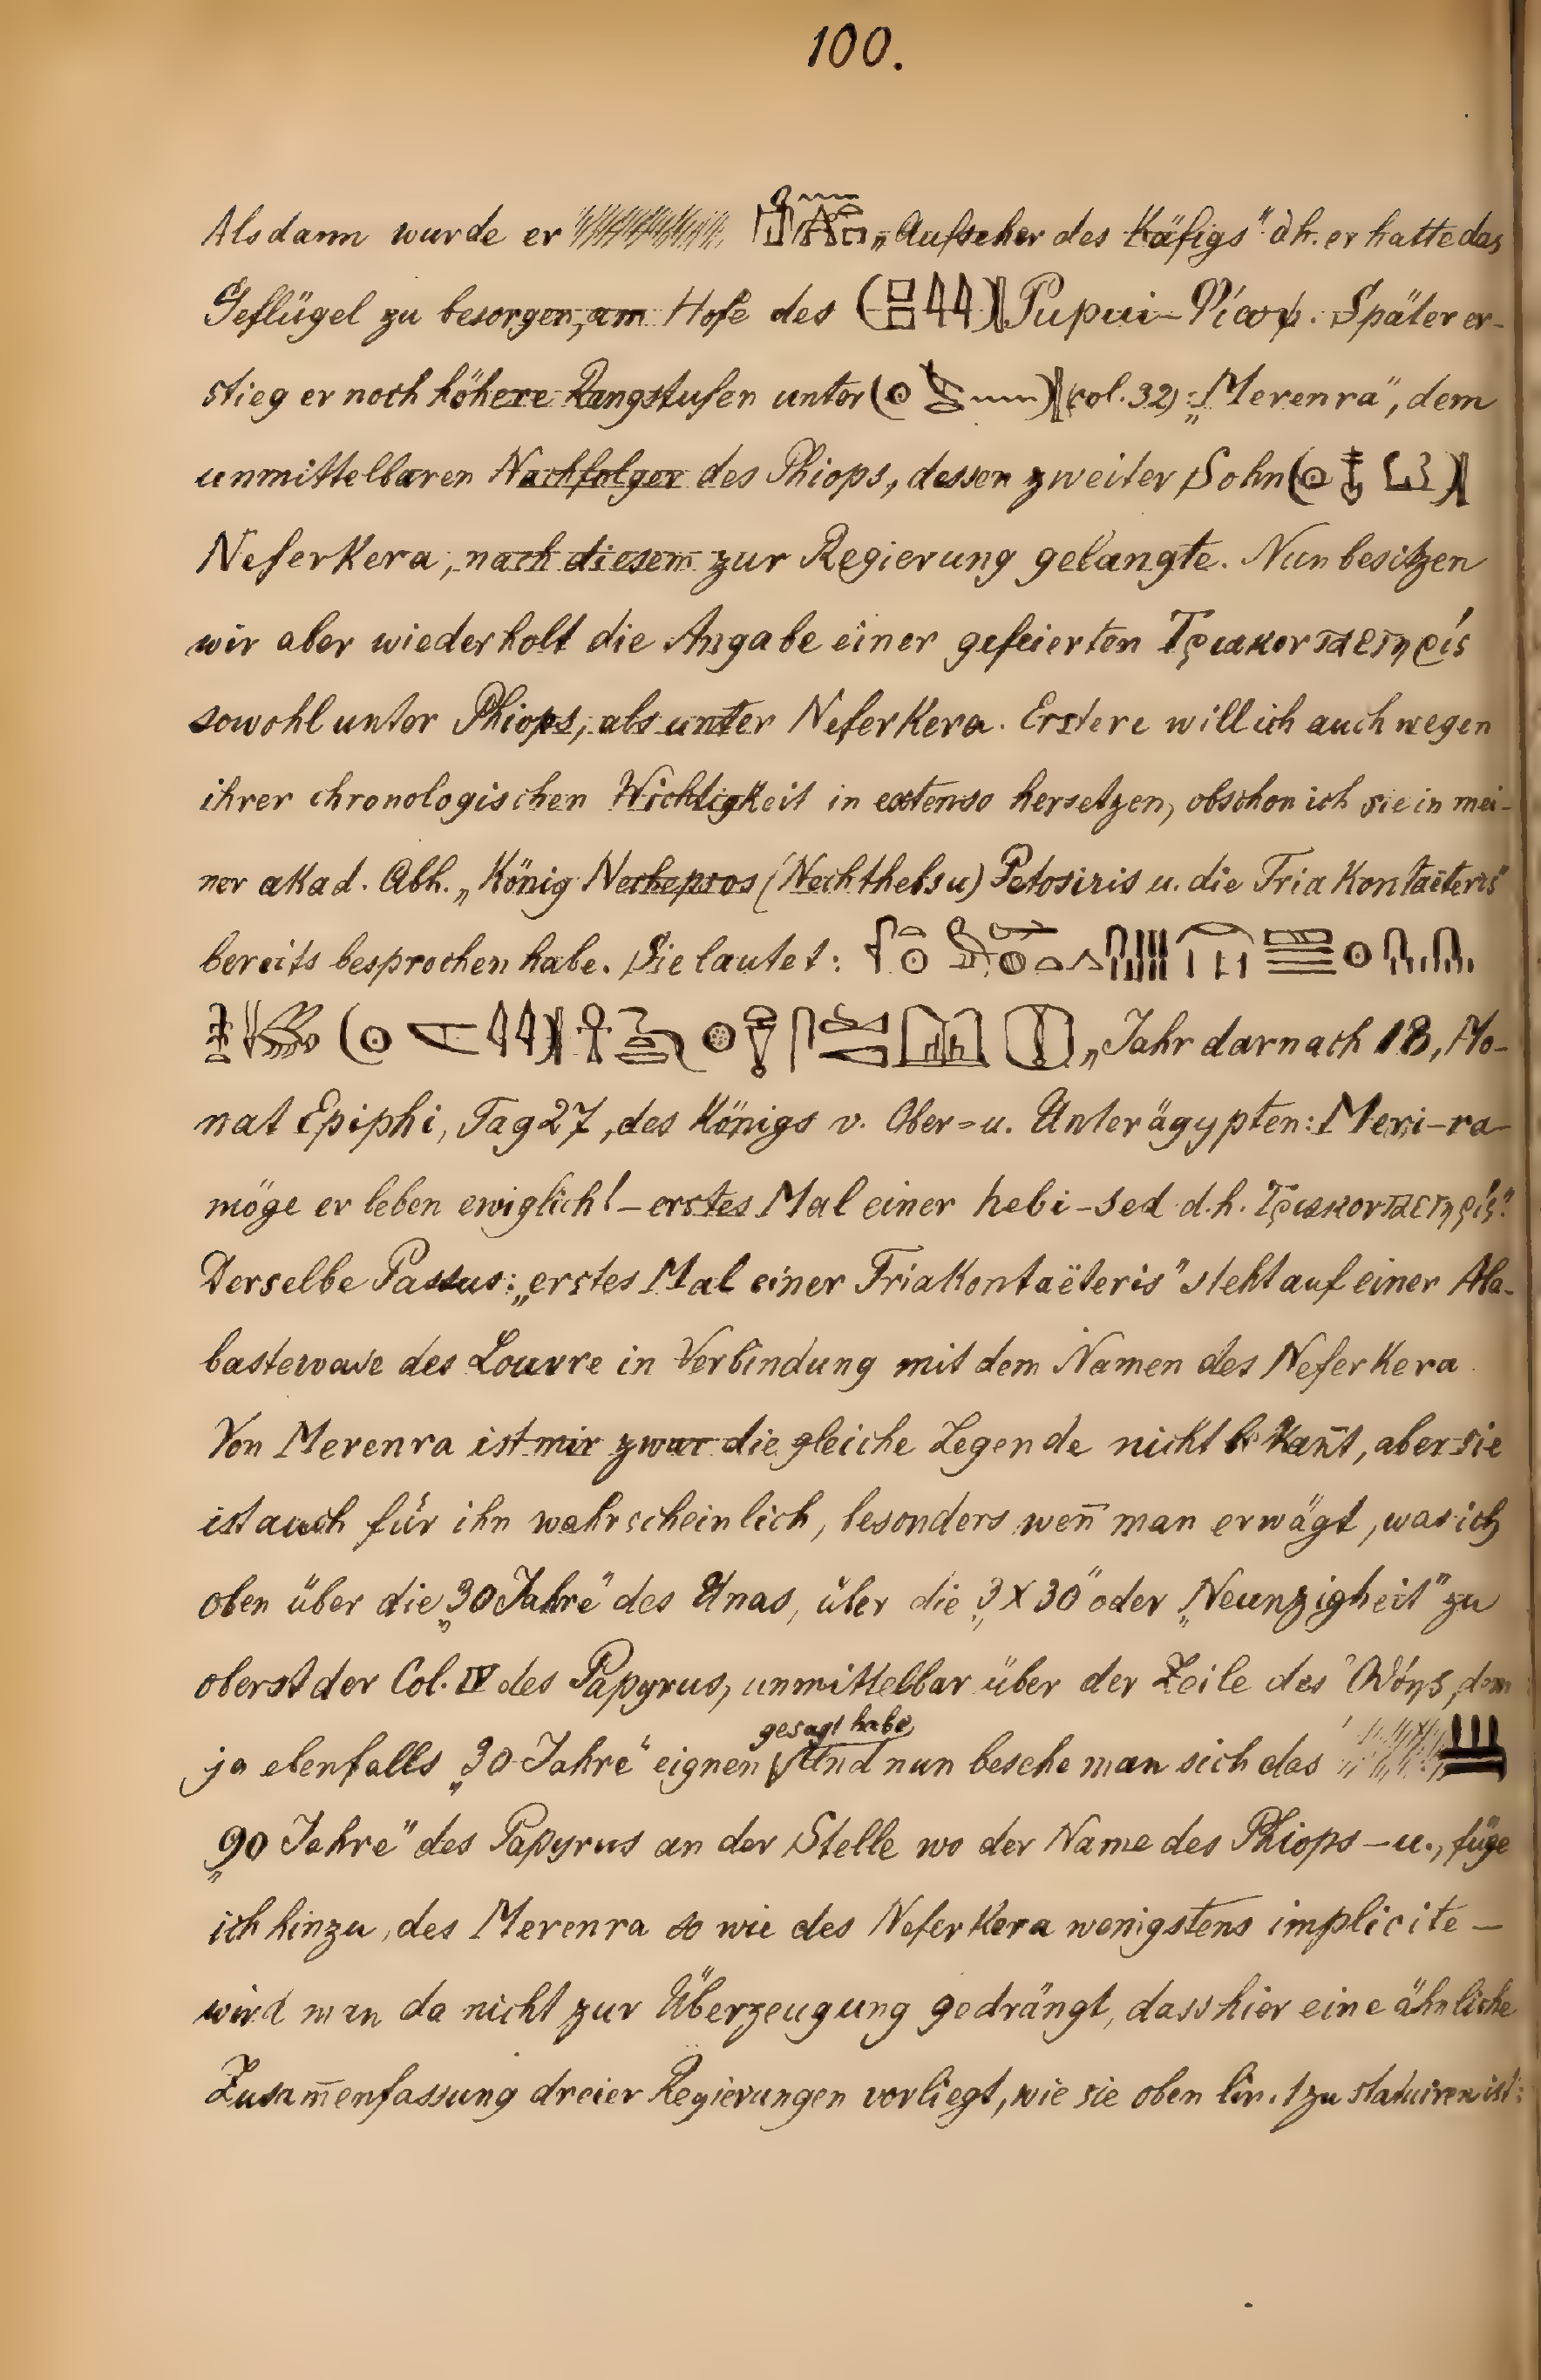 100.
Alsdann wurde er „Aufseher des Käfigs“ dh. er hatte das
Geflügel zu besorgen, am Hofe des Pupui-Φίοψ. Später er-
stieg er noch höhere Rangstufen unter (col. 32): „Merenra“, dem
unmittelbaren Nachfolger des Phiops, dessen zweiter Sohn
Neferkera, nach diesem zur Regierung gelangte. Nun besitzen
wir aber wiederholt die Angabe einer gefeierten Τριακονταετηρίς
sowohl unter Phiops, als unter Neferkera. Erstere will ich auch wegen
ihrer chronologischen Wichtigkeit in extenso hersetzen, obschon ich sie in mei-
ner akad. Abh. „König Nechepsos (Nechthebsu) Petosiris u. die Triakontaëteris“
bereits besprochen habe. Sie lautet:
„Jahr darnach 18, Mo-
nat Epiphi, Tag 27, des Königs v. Ober= u. Unterägypten: Meri-ra
möge er leben ewiglich! – erstes Mal einer hebi-sed d.h. Τριακονταετηρίς“.
Derselbe Passus: „erstes Mal einer Triakontaëteris“ steht auf einer Ala-
bastervase des Louvre in Verbindung mit dem Namen des Neferkera
Von Merenra ist mir zwar die gleiche Legende nicht bekan̄t, aber sie
ist auch für ihn wahrscheinlich, besonders wen̄ man erwägt, was ich
oben über die „30 Jahre“ des Unas, über die „3 X 30“ oder „Neunzigheit“ zu
oberst der Col. IV des Papyrus, unmittelbar über der Zeile des dem
gesagt habe,
ja ebenfalls „30 Jahre“ eignen Und nun besehe man sich das
„90 Jahre“ des Papyrus an der Stelle wo der Name des Phiops – u., füge
ich hinzu, des Merenra so wie des Neferkera wenigstens implicite –
wird man da nicht zur Überzeugung gedrängt, dass hier eine ähnliche
Zusam̄enfassung dreier Regierungen vorliegt, wie sie oben lin. 1 zu statuiren ist: